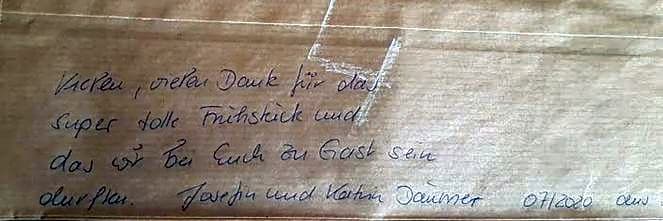 Vielen, vielen Dank für das
super tolle Frühstück und
das wir bei Euch zu Gast sein
durften. Josefin und Katrin 07/2020 aus